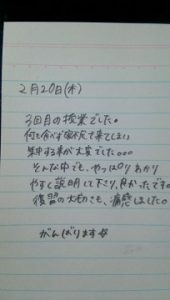 2月20日(木)
3回目の授業でした。
何も食べず寝不足で来てしまい
集中する事が大変でした。。。
そんな中でも、やっぱりわかり
やすく説明して下さり、良かったです。
復習の大切さも、痛感しました。
がんばります